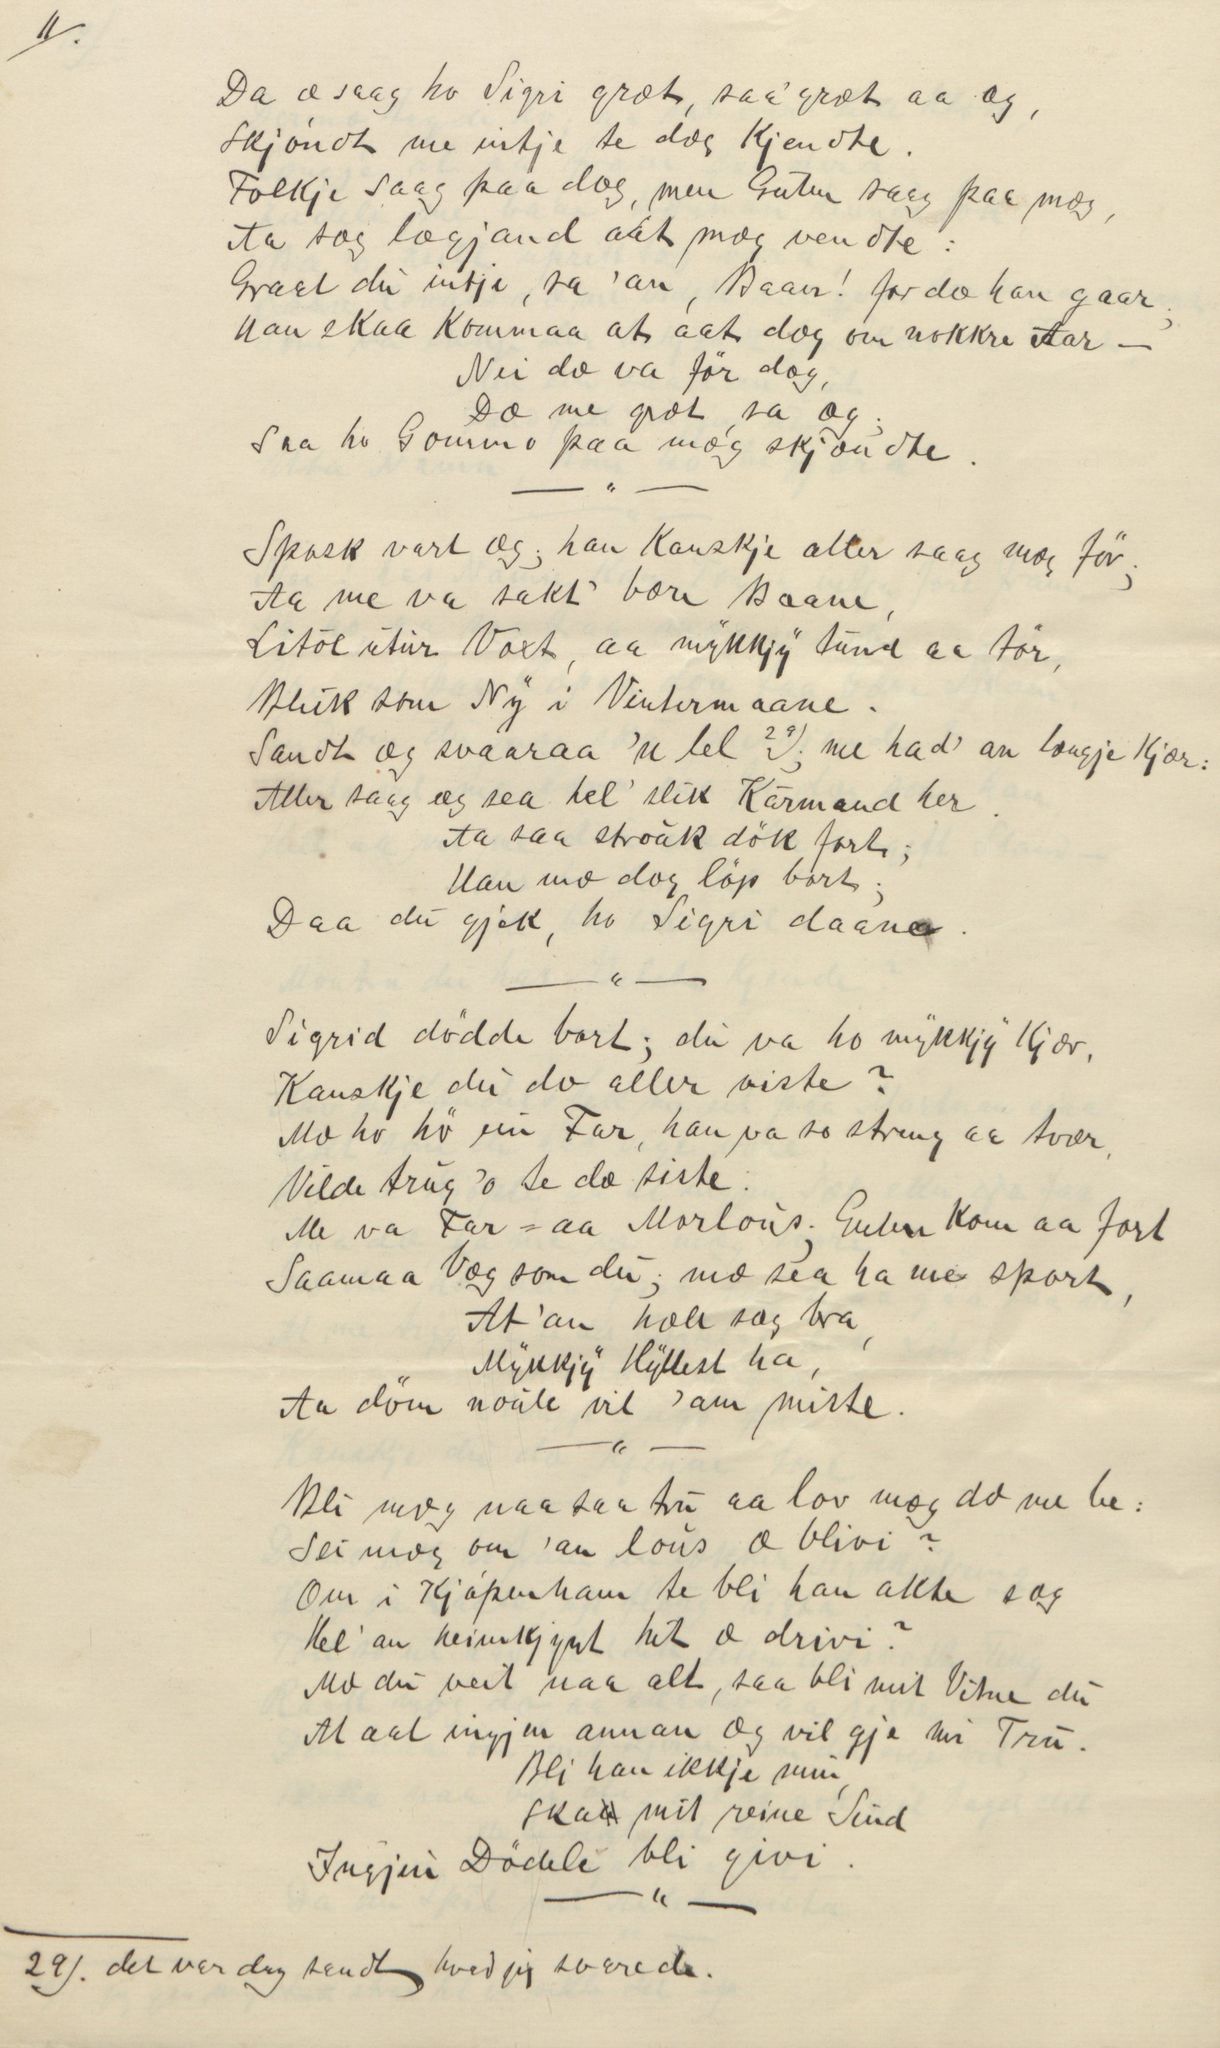 11/.
Da æ saag ho Sigri græt, saa græt aa æg,
Skjöndt me intje te dæg Kjendte.
Folkje saag paa dæg, men Guten saag paa mæg,
Aa sæg lægjand aat mæg vendte:
Graat du intje, sa 'an, Baan! for dæ han gaar;
Han skaa Kommaa at aat dæg om nokkre Aar —
Nei dæ va för dæg,
Dæ me græt, sa æg;
Saa ho Gommo paa mæg skjændte.
— " —
Spæsk vart æg; han Kanskje aller saag mæg för;
Aa me va sakt' bære Baane,
Litöl utur Voxt, aa mykkjy tund aa tör,
Bleik som Ny i Vintermaane.
Sandt æg svaaraa 'n lel 29); me had' an længje Kjær:
Aller saag æg sea hel' slik Karmand her.
Aa saa strauk dök fort;
Han mæ dæg löp bort;
Daa du gjek, ho Sigri daana.
— " —
Sigrid dödde bort; du va ho mykkjy Kjær,
Kanskje du dæ aller viste?
Mæ ho hö ein Far, han va so streng aa tvær,
Vilde trug 'o te dæ siste.
Me va Far = aa Morlous; Guten Kom aa fort
Saamaa Væg som du; mæ sea ha me sport,
At 'an hæle sæg bra,
Mykkjy Hyllest ha,
Aa döm noüle vil 'am miste.
— " —
Bli mæg naa saa tru aa lov mæg dæ me be:
Sei mæg om 'an lous æ blivi?
Om i Kjöpenham te bli han akte sæg
Hel' an heimkjynt hit æ drivi?
Mæ du veit naa alt, saa bli mit Vitne du
At aat ingjen annan æg vil gje mi Tru.
Bli han ikkje min,
Skaa mit reine Sind
Ingjen Dödele bli givi.
— " —
29). det var dog sandt, hvad jeg svarede.